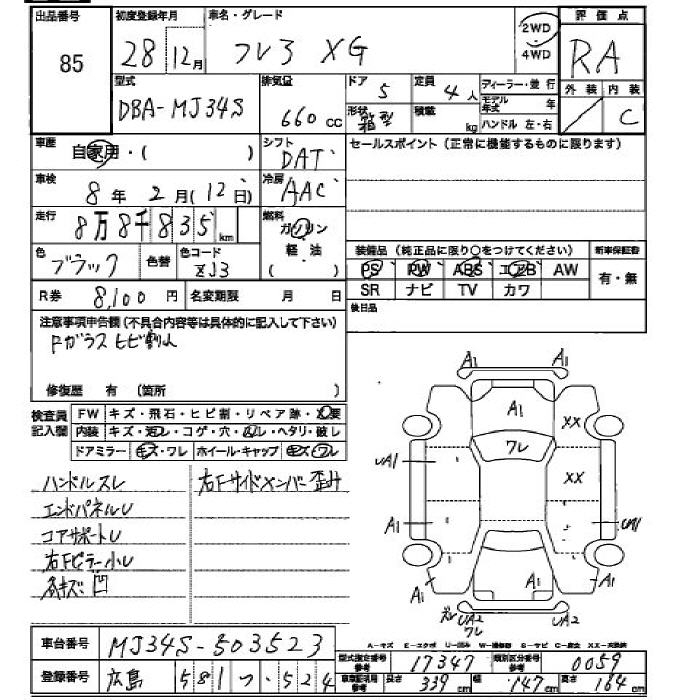 出品番号
85
初度登録年月
28 12月
車名・グレード
フレア XG
2WD
4WD
評価点
RA
外装 内装
C
型式
DBA-MJ34S
排気量
660 cc
ドア
5
定員
4人
形状
箱型
積載
kg
ディーラー・並行
モデル年式 年
ハンドル 左・右
車歴
自家用・( )
シフト
DAT
セールスポイント(正常に機能するものに限ります)
車検
8年 2月(12日)
冷房
AAC
走行
8万8千835km
燃料
ガソリン
軽・油
( )
色
ブラック
色替
色コード
ZJ3
装備品(純正品に限り○をつけてください)
新車保証書
PS PW ABS エアB AW
SR ナビ TV カワ
有・無
R券 8,100円
名変期限 月 日
後日品
注意事項申告欄(不具合内容等は具体的に記入して下さい)
Fガラスヒビ割レ
修復歴 有 (箇所 )
検査員
記入欄
FW キズ・飛石・ヒビ割・リペア跡・交要
内装 キズ・汚レ・コゲ・穴・ スレ・ヘタリ・破レ
ドアミラー キズ・ワレ
ホイール・キャップ キズ・ワレ
ハンドルスレ
エンドパネルU
コアサポートU
右Fピラー小U
各キズ凹
右Fサイドメンバー歪み
A1
A1
A1
XX
ワレ
UA1
XX
A1
A1
A1
A1
A1
UA2
UA2
ワレ
A-キズ E-エクボ U-凹み W-補修跡 S-サビ C-腐食 XX-交換済
車台番号
MJ34S-503523
登録番号
広島 581 つ 524
型式指定番号
参考
17347
類別区分番号
参考
0059
車検証記載
参考
長さ 339cm
幅 147cm
高さ 164cm